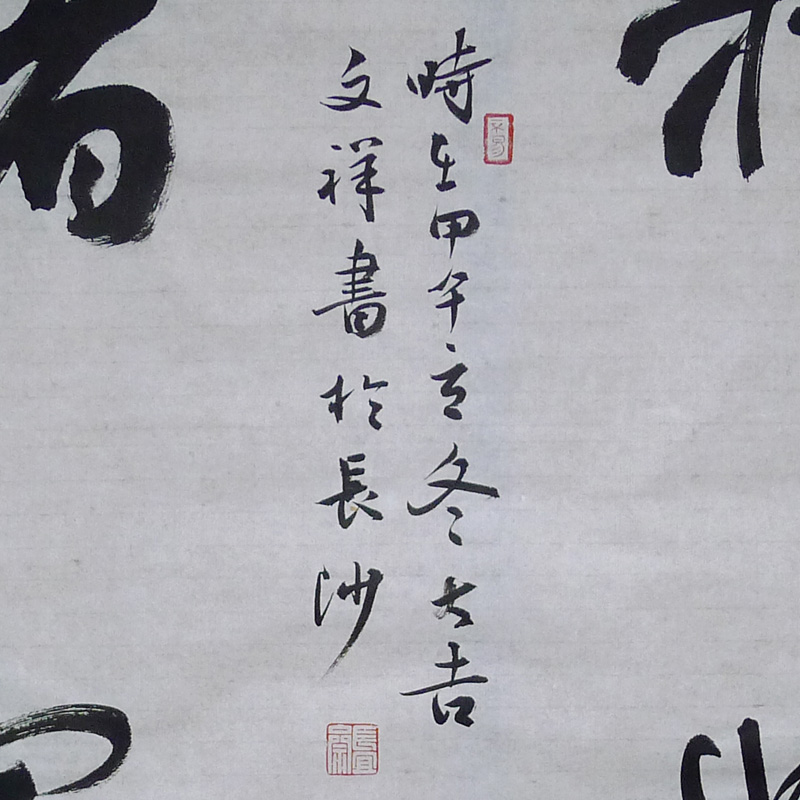 時在甲午立冬大吉
文祥書於長沙